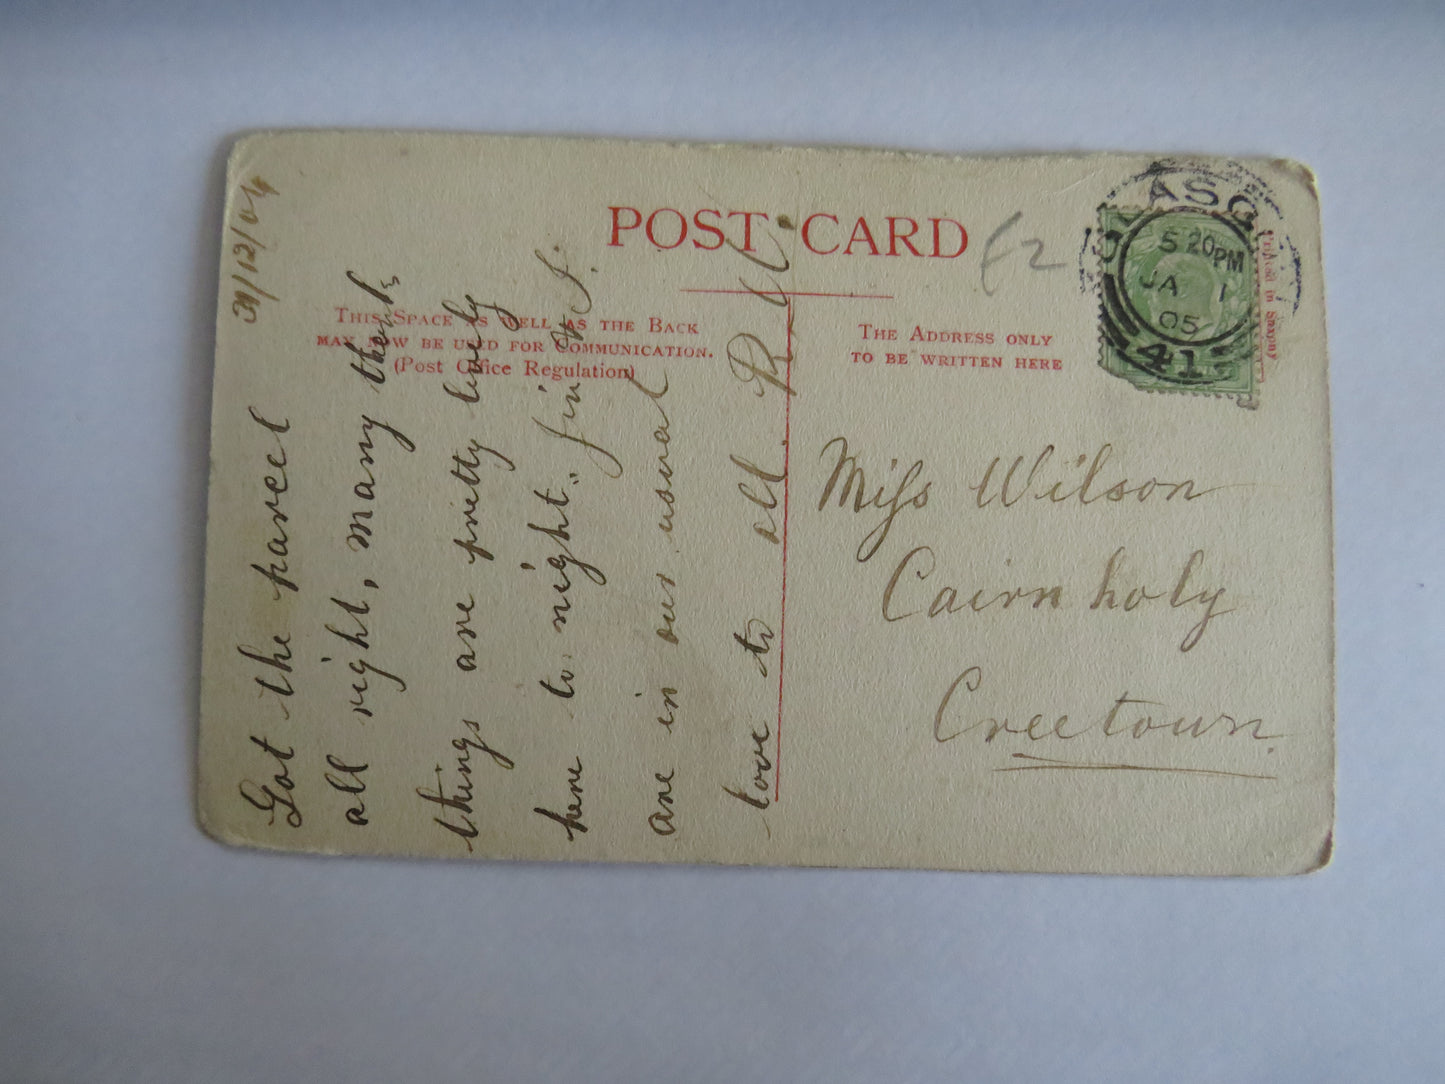 POST CARD
THIS SPACE AS WELL AS THE BACK
MAY NOW BE USED FOR COMMUNICATION.
(Post Office Regulation)
THE ADDRESS ONLY
TO BE WRITTEN HERE
£2
GLASGOW
5 20PM
JA 1
05
Printed in Saxony
31/12/04
Got the parcel
all right, many thanks
things are pretty lively
here to night. Jim & J.
are in our usual
love to all. R.
Miſs Wilson
Cairnholy
Creetown.